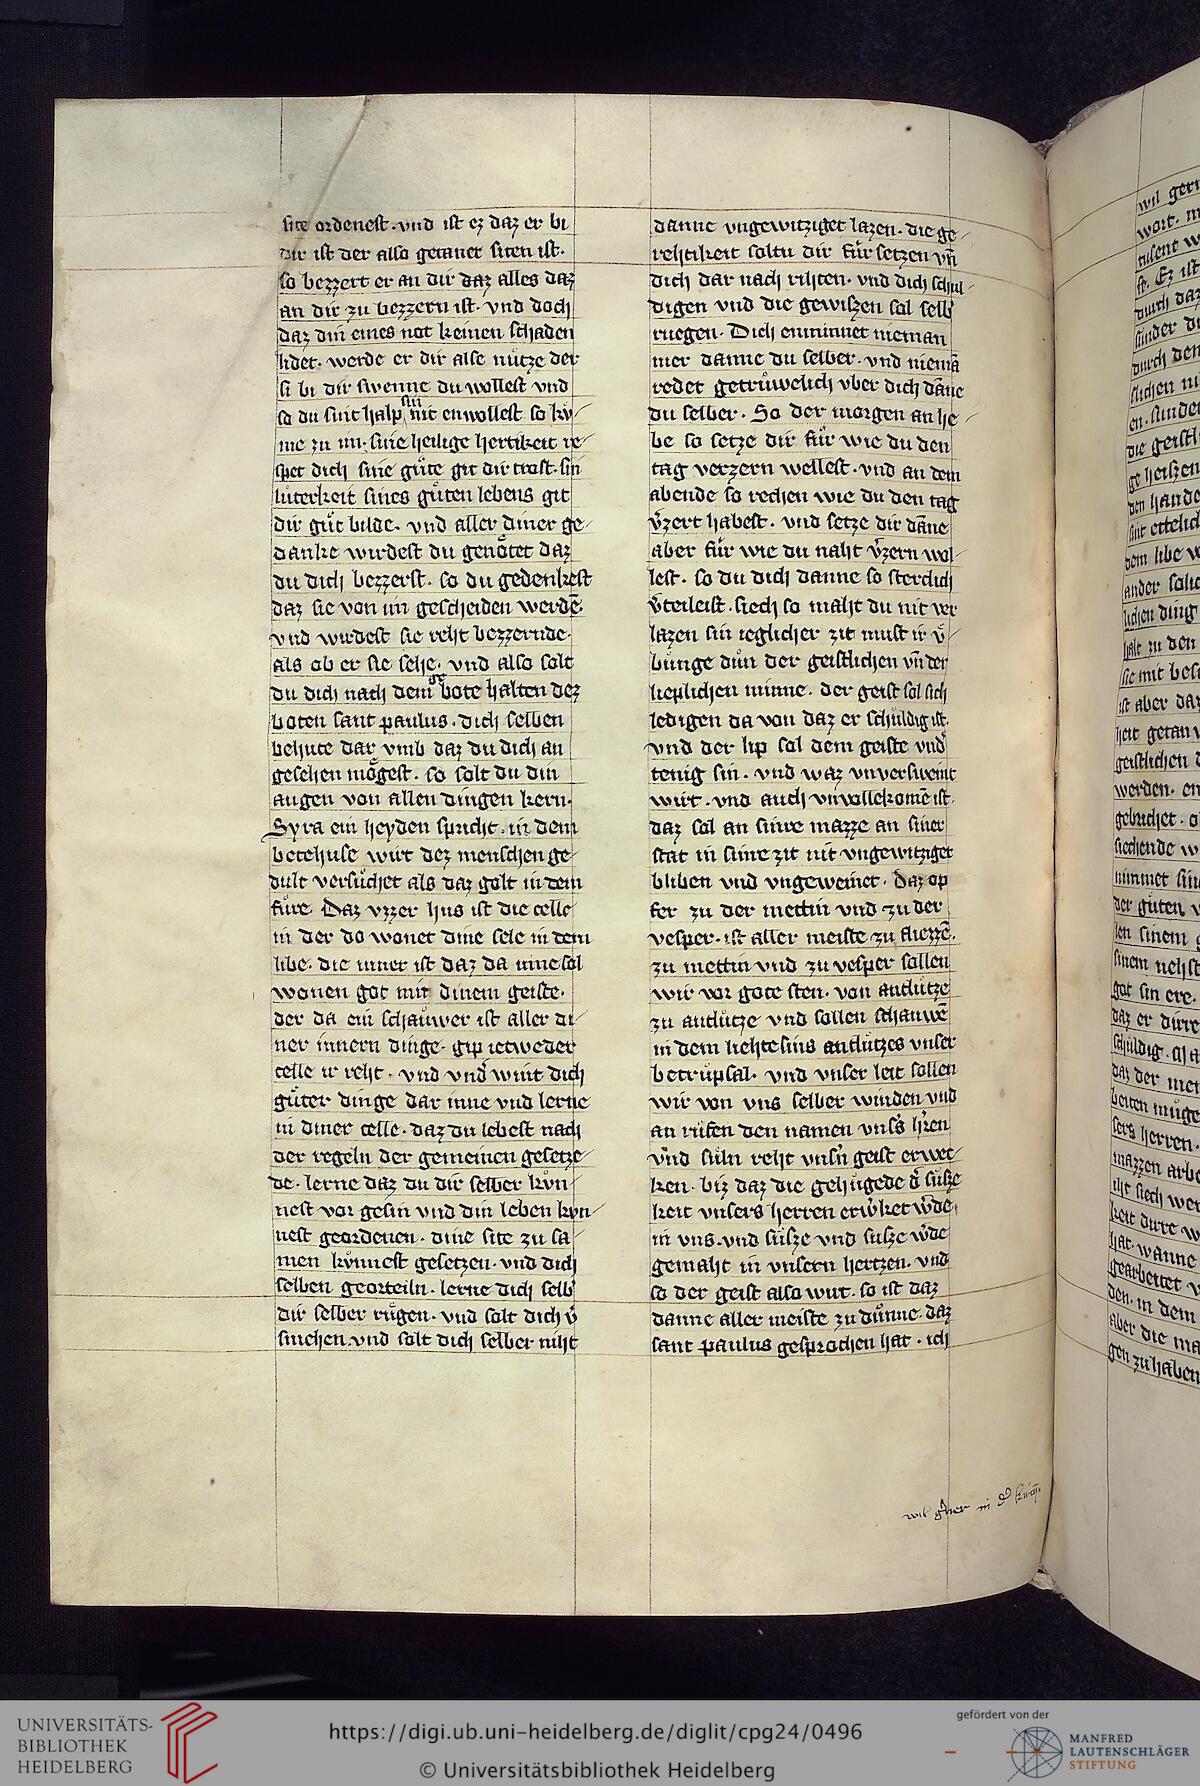 site ordenest · vnd ist ez daz er bi
dir ist der also getaner siten ist ·
so bezzert er an dir daz alles daz
an dir zu bezzern ist · vnd doch
daz din eines not keinen schaden
lidet · werde er dir alse nuͤtze der
si bi dir swenne du wollest vnd
so du sint halp sin nit enwollest so kuͦ-
me zu im · sine heilige hertikeit re-
spet dich sine guͤte git dir trost · sin
luͤterkeit sines guͤten lebens git
dir guͦt bilde · vnd aller diner ge-
danke wirdest du genoͤtet daz
du dich bezzerst · so du gedenkest
daz sie von im gescheiden werdē ·
vnd wirdest sie reht bezzernde ·
als ob er sie sehe · vnd also solt
du dich nach dem gebote halten dez
boten sant paulus · dich selben
behute dar vmb daz du dich an
gesehen moͤgest · so solt du din
augen von allen dingen kern ·
Syra ein heyden spricht · in dem
betehuse wirt dez menschen ge-
dult versuͦchet als daz golt in dem
fuͤre · Daz vzzer hus ist die celle
in der do wonet dine sele in dem
libe · die inner ist daz da inne sol
wonen got mit dinem geiste ·
der da ein schauwer ist aller di-
ner innern dinge · gip ietweder
celle ir reht · vnd vnd' wint dich
guͤter dinge dar inne vnd lerne
in diner celle · daz du lebest nach
der regeln der gemeinen gesetze-
de · lerne daz du dir selber kuͤn-
nest vor gesin vnd din leben kuͤn-
nest geordenen · dine site zu sa-
men kuͤnnest gesetzen · vnd dich
selben georteiln · lerne dich selb'
dir selber ruͤgen · vnd solt dich v'
suͦchen vnd solt dich selber niht
danne vngewitziget lazen · die ge-
rehtikeit soltu dir fuͤr setzen vn̄
dich dar nach rihten · vnd dich schul-
digen vnd die gewiszen sol selb'
ruegen · Dich enminnet nieman
mer danne du selber · vnd niemā
redet getruͤwelich vber dich dāne
du selber · So der morgen an he-
be so setze dir fuͤr wie du den
tag verzern wellest · vnd an dem
abende so rechen wie du den tag
v'zert habest · vnd setze dir dāne
aber fuͤr wie du naht v'zern wol-
lest · so du dich danne so sterclich
v'teileist · siech so maht du nit ver
lazen sin ieglicher zit must ir v'-
buͤnge duͦn der geistlichen vn̄ der
lieplichen minne · der geist sol sich
ledigen da von daz er schuldig ist ·
vnd der lip sol dem geiste vnd'
tenig sin · vnd waz vnversweint
wirt · vnd auch vnvollekomē ist ·
daz sol an sinre mazze an siner
stat in sinre zit nit vngewitziget
bliben vnd vngeweinet · Daz op
fer zu der mettin vnd zu der
vesper · ist aller meiste zu fliezzē ·
zu mettin vnd zu vesper sollen
wir vor gote sten · von antluͤtze
zu antluͤtze vnd sollen schauwē
in dem liehte sins antluͤtzes vnser
betruͤpsal · vnd vnser leit sollen
wir von vns selber winden vnd
an ruͤfen den namen vns's h'ren
vnd suͤln reht vnsn̄ geist erwec-
ken · biz daz die gehuͤgede d' suͤsze
keit vnsers herren erw'ket w'de
in vns · vnd suͤsze vnd susze w'de
gemaht in vnsern hertzen · vnd
so der geist also wirt · so ist daz
danne aller meiste zu duͦnne · daz
sant paulus gesprochen hat · ich
wil
wil geri
wort · 
tusent w
Ez ist
durch daz
sunder d
durch den
slichen ni
en · sunder
die geistl
ge heiszen
den hande
sint etteliche
dem libe w
ander solic
lichen ding
halt zu den
sie mit besc
ist aber daz
heit getan v
geistlichen d
werden · en
gebuchet · o
siechende w
nimmet sin
der guͤten v
len sinem g
sinem nehst
got sin ere ·
daz er dirre
schuldig ·
daz der men
beiten muͤge
sers herren ·
mazzen arbe
iht siech wer
keit dirre w
hat · wanne
gearbeitet v
den · in dem
aber die ma
gen zu haben
UNIVERSITÄTS-
BIBLIOTHEK
HEIDELBERG
https://digi.ub.uni-heidelberg.de/diglit/cpg24/0496
© Universitätsbibliothek Heidelberg
gefördert von der
MANFRED
LAUTENSCHLÄGER
STIFTUNG